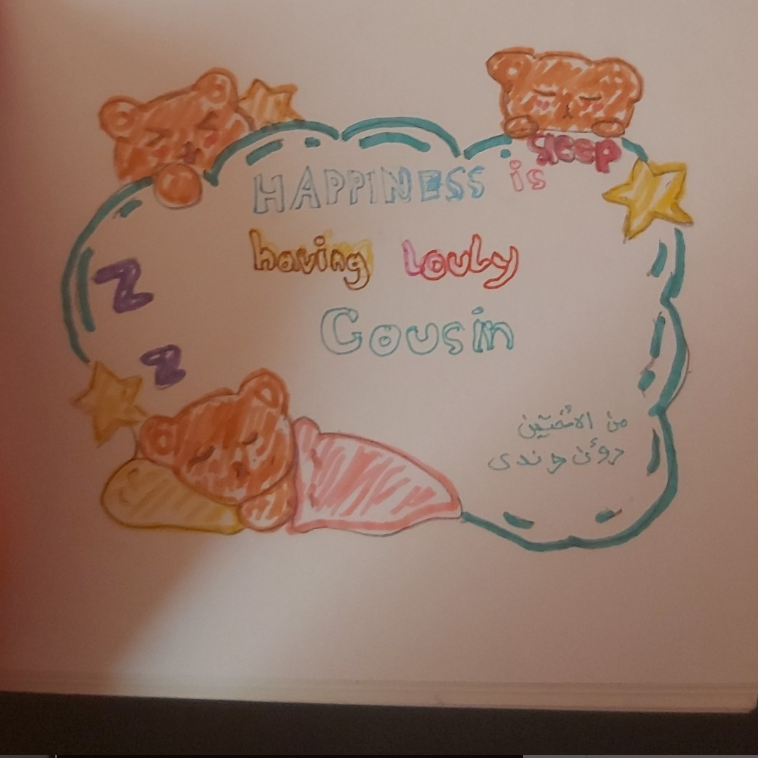 sleep
HAPPINESS is
having Lovly
Cousin
Z
Z
من الأختين
روان وندى